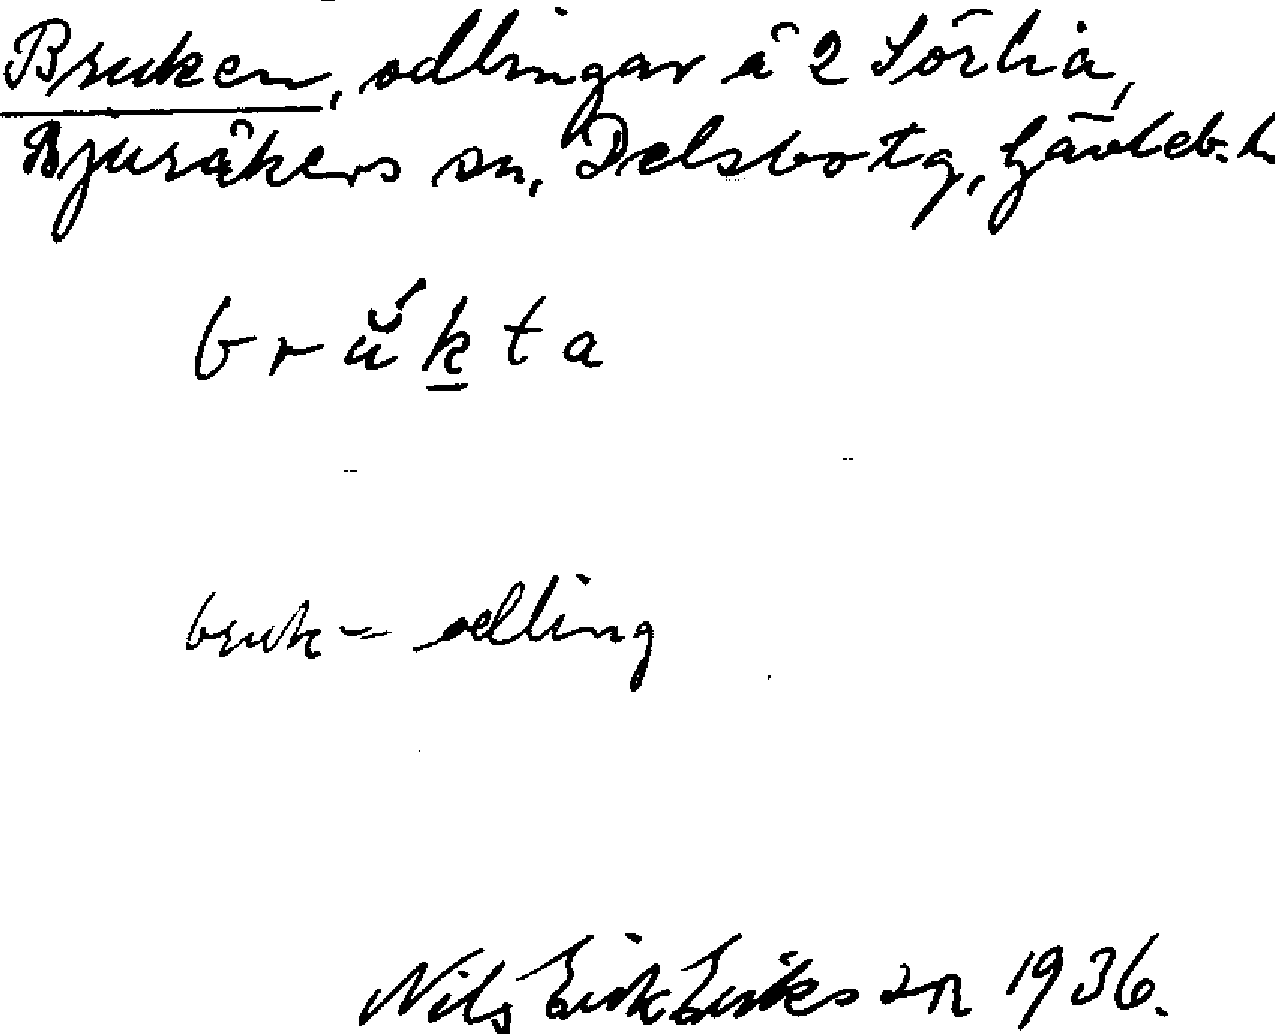 Bruken, odlingar å 2 Sörlia,
Bjuråkers sn, Delsbo tg, Gävleb. l.
brŭ́k̲ta
bruk = odling
Nils Erik Eriksson 1936.